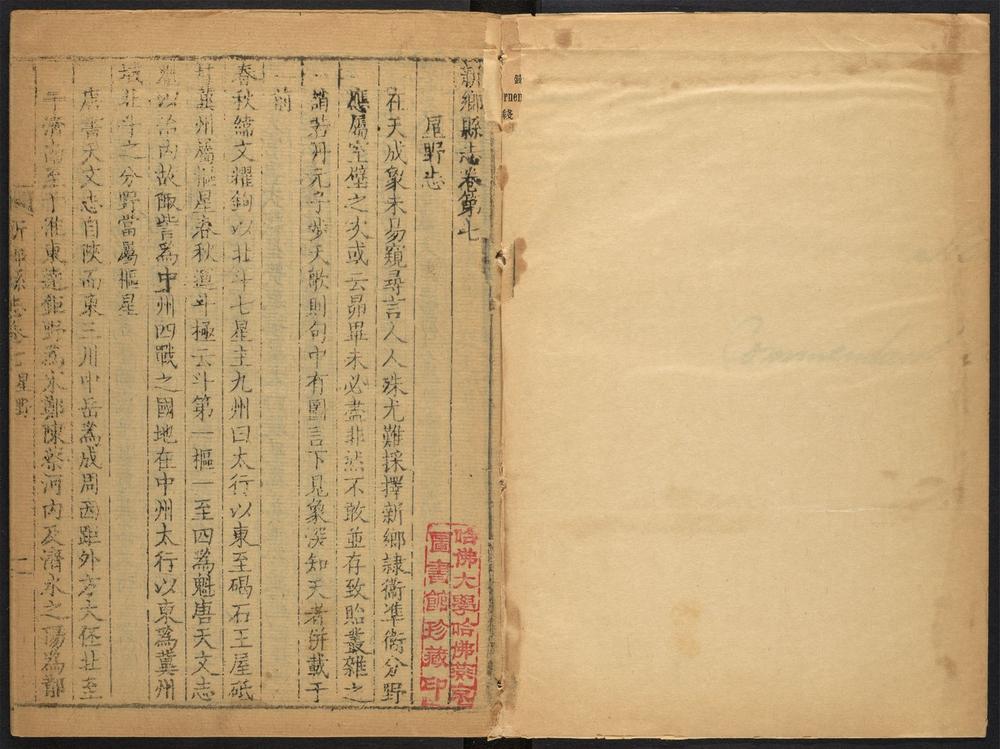 新鄉縣志卷第七
星野志
在天成象未易窺尋言人人殊尤難採擇新鄉隷衞準衞分野
應屬室壁之次或云昴畢未必盡非然不敢並存致貽叢雜之
誚若丹元子步天歌則句中有圖言下見象深知天者併載于
前
春秋緯文耀鉤以北斗七星主九州曰太行以東至碣石王屋砥
柱冀州屬樞星春秋運斗極云斗第一樞一至四爲魁唐天文志
以河內故陬訾爲中州四戰之國地在中州太行以東爲冀州
域北斗之分野當屬樞星
唐書天文志自陝而東三川中岳爲成周西距外方大伾北至
于濟南至于淮東達鉅野爲宋鄭陳蔡河內及濟水之陽爲鄘
新鄉縣志卷七 星野 一
哈佛大學哈佛燕京
圖書館珍藏印